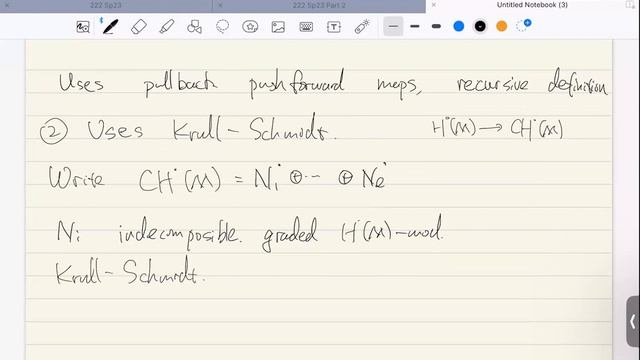 222 Sp23
222 Sp23 Part 2
Untitled Notebook (3)
Uses pullback pushforward maps, recursive definition
② Uses Krull-Schmidt. H˙(M) → CH˙(M)
Write CH˙(M) = N₁˙ ⊕ ·· ⊕ Nₑ˙
Nᵢ indecomposible graded H˙(M)-mod.
Krull-Schmidt.